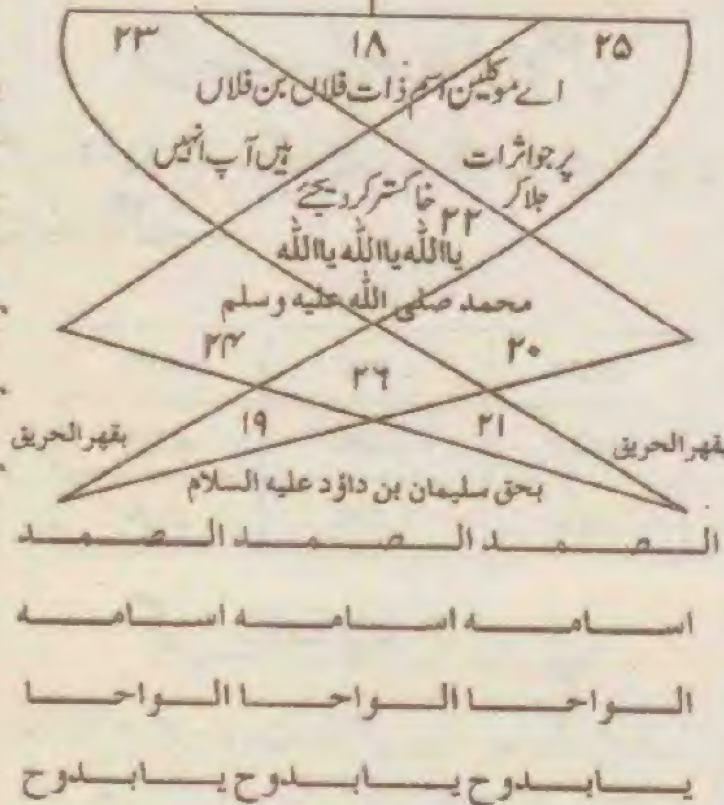 ۲۳ ۱۸ ۲۵
اے موکلین اسم ذات فلاں بن فلاں
پر جو اثرات ہیں آپ انہیں
جلا کر خاکستر کر دیجئے
۲۲
یااللہ یااللہ یااللہ
محمد صلی اللہ علیہ وسلم
۲۴ ۲۰
۲۶
۱۹ ۲۱
بقهر الحریق بقهر الحریق
بحق سلیمان بن داؤد علیہ السلام
الصمد الصمد الصمد
اسامه اسامه اسامه
الواحا الواحا الواحا
یابدوح یابدوح یابدوح